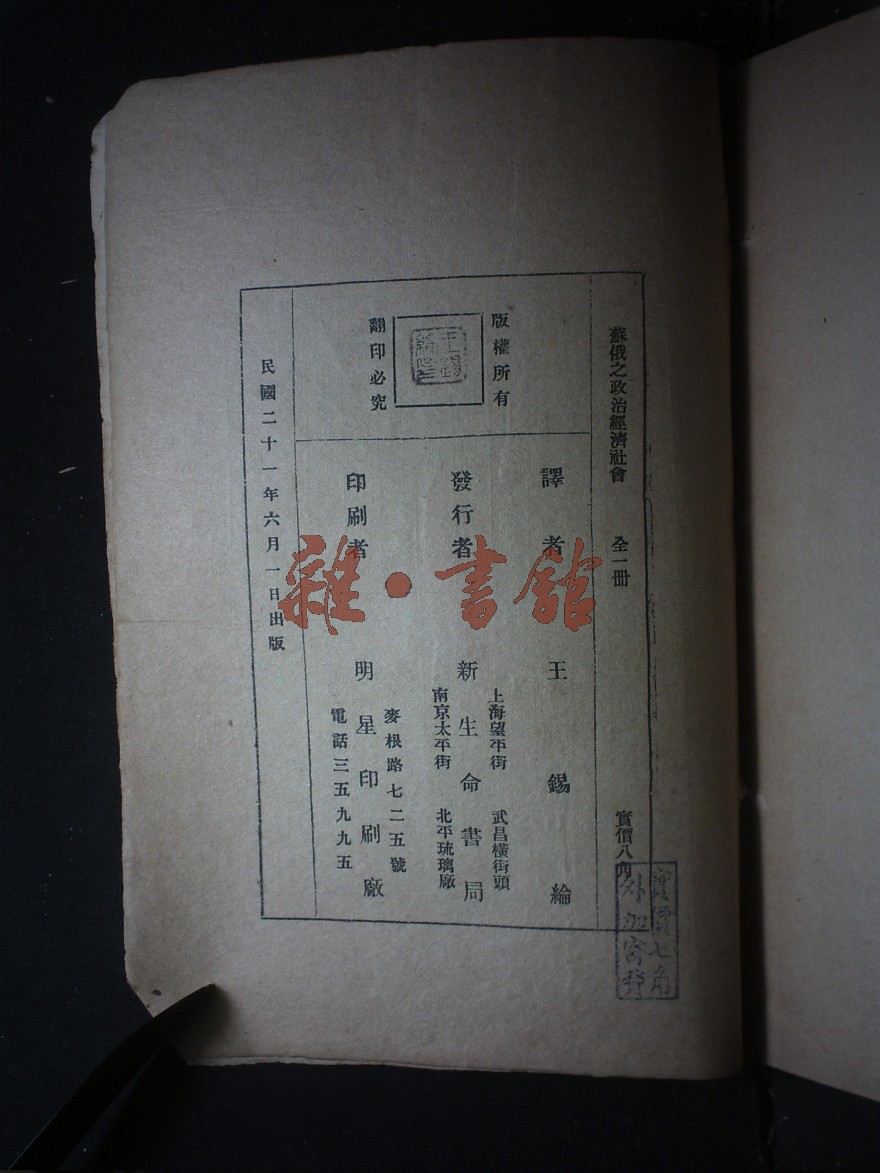 蘇俄之政治經濟社會　全一冊　實價八角
實價七角
外加寄費
版權所有
翻印必究
譯者　王錫綸
發行者　新生命書局
上海望平街　武昌橫街頭
南京太平街　北平琉璃廠
印刷者　明星印刷廠
麥根路七二五號
電話三五九九五
民國二十一年六月一日出版
雜·書館